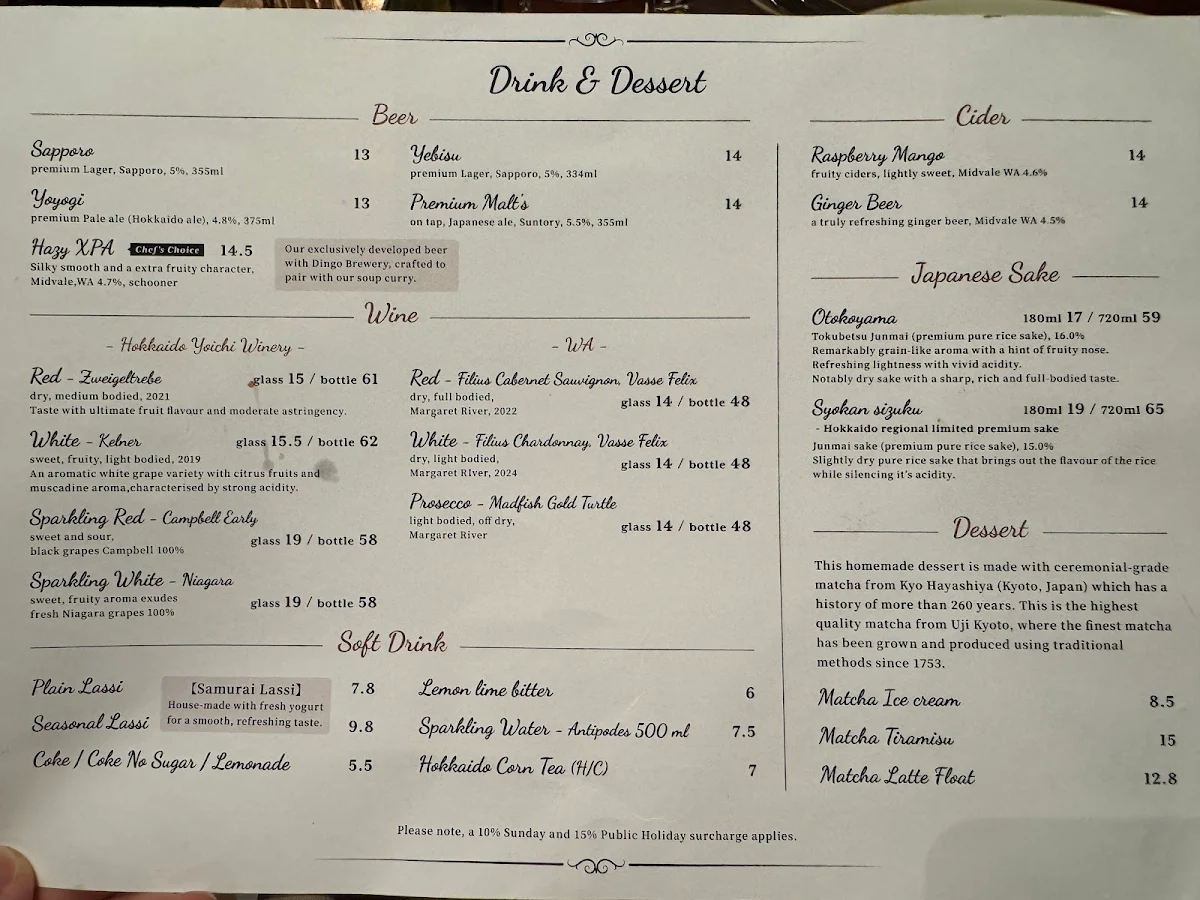 Drink & Dessert
Beer
Sapporo 13
premium Lager, Sapporo, 5%, 355ml
Yoyogi 13
premium Pale ale (Hokkaido ale), 4.8%, 375ml
Hazy XPA Chef's Choice 14.5
Silky smooth and a extra fruity character,
Midvale,WA 4.7%, schooner
Our exclusively developed beer
with Dingo Brewery, crafted to
pair with our soup curry.
Yebisu 14
premium Lager, Sapporo, 5%, 334ml
Premium Malt's 14
on tap, Japanese ale, Suntory, 5.5%, 355ml
Wine
- Hokkaido Yoichi Winery -
Red - Zweigeltrebe glass 15 / bottle 61
dry, medium bodied, 2021
Taste with ultimate fruit flavour and moderate astringency.
White - Kelner glass 15.5 / bottle 62
sweet, fruity, light bodied, 2019
An aromatic white grape variety with citrus fruits and
muscadine aroma,characterised by strong acidity.
Sparkling Red - Campbell Early
sweet and sour, glass 19 / bottle 58
black grapes Campbell 100%
Sparkling White - Niagara
sweet, fruity aroma exudes glass 19 / bottle 58
fresh Niagara grapes 100%
- WA -
Red - Filius Cabernet Sauvignon, Vasse Felix
dry, full bodied, glass 14 / bottle 48
Margaret River, 2022
White - Filius Chardonnay, Vasse Felix
dry, light bodied, glass 14 / bottle 48
Margaret RIver, 2024
Prosecco - Madfish Gold Turtle
light bodied, off dry, glass 14 / bottle 48
Margaret River
Soft Drink
Plain Lassi 7.8
Seasonal Lassi 9.8
【Samurai Lassi】
House-made with fresh yogurt
for a smooth, refreshing taste.
Coke / Coke No Sugar / Lemonade 5.5
Lemon lime bitter 6
Sparkling Water - Antipodes 500 ml 7.5
Hokkaido Corn Tea (H/C) 7
Cider
Raspberry Mango 14
fruity ciders, lightly sweet, Midvale WA 4.6%
Ginger Beer 14
a truly refreshing ginger beer, Midvale WA 4.5%
Japanese Sake
Otokoyama 180ml 17 / 720ml 59
Tokubetsu Junmai (premium pure rice sake), 16.0%
Remarkably grain-like aroma with a hint of fruity nose.
Refreshing lightness with vivid acidity.
Notably dry sake with a sharp, rich and full-bodied taste.
Syokan sizuku 180ml 19 / 720ml 65
- Hokkaido regional limited premium sake
Junmai sake (premium pure rice sake), 15.0%
Slightly dry pure rice sake that brings out the flavour of the rice
while silencing it's acidity.
Dessert
This homemade dessert is made with ceremonial-grade
matcha from Kyo Hayashiya (Kyoto, Japan) which has a
history of more than 260 years. This is the highest
quality matcha from Uji Kyoto, where the finest matcha
has been grown and produced using traditional
methods since 1753.
Matcha Ice cream 8.5
Matcha Tiramisu 15
Matcha Latte Float 12.8
Please note, a 10% Sunday and 15% Public Holiday surcharge applies.